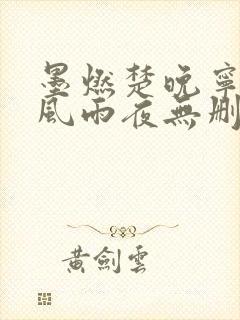 墨燃楚晚寧
風雨夜無刪
黃劍雲